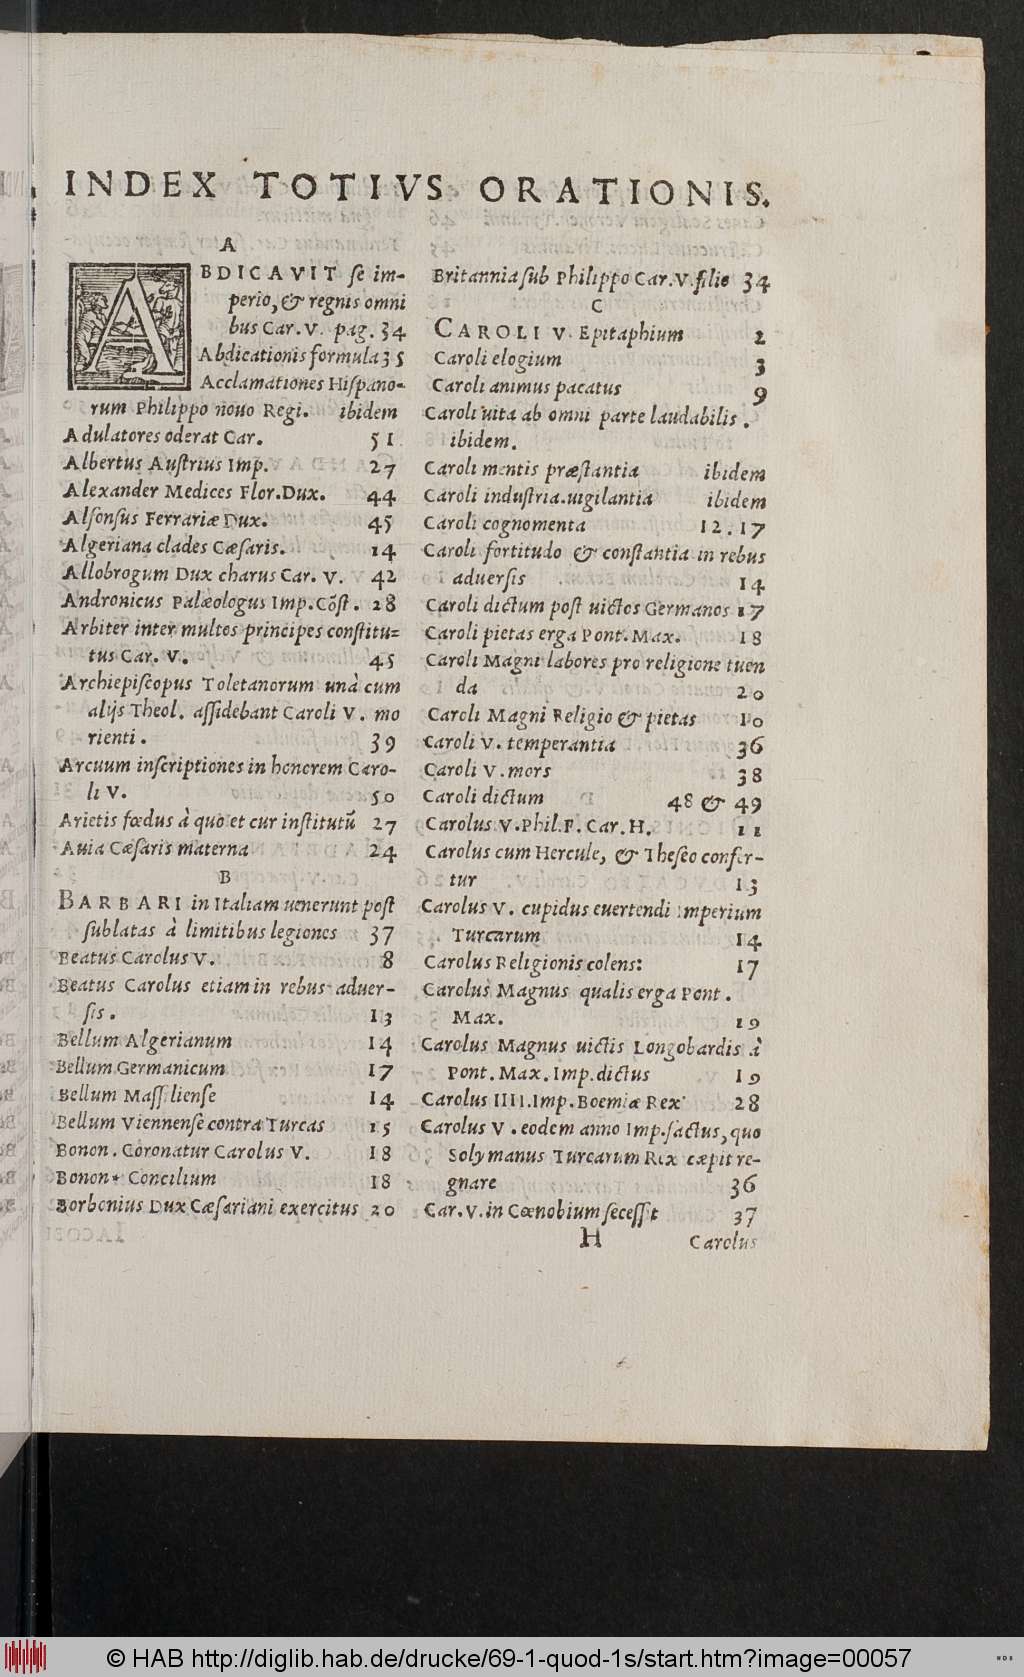 INDEX TOTIVS ORATIONIS.
A
ABDICAVIT se im-
perio, & regnis omni
bus Car. V. pag. 34
Abdicationis formula 35
Acclamationes Hispano-
rum Philippo nouo Regi. ibidem
Adulatores oderat Car. 51
Albertus Austrius Imp. 27
Alexander Medices Flor. Dux. 44
Alfonsus Ferrariæ Dux. 45
Algeriana clades Cæsaris. 14
Allobrogum Dux charus Car. V. 42
Andronicus Palæologus Imp. Cõst. 28
Arbiter inter multos principes constitu=
tus Car. V. 45
Archiepiscopus Toletanorum unà cum
alijs Theol. assidebant Caroli V. mo
rienti. 39
Arcuum inscriptiones in honorem Caro-
li V. 50
Arietis fœdus à quo et cur institutũ 27
Auia Cæsaris materna 24
B
BARBARI in Italiam uenerunt post
sublatas à limitibus legiones 37
Beatus Carolus V. 8
Beatus Carolus etiam in rebus aduer-
sis. 13
Bellum Algerianum 14
Bellum Germanicum 17
Bellum Massiliense 14
Bellum Viennense contra Turcas 15
Bonon. Coronatur Carolus V. 18
Bonon. Concilium 18
Borbonius Dux Cæsariani exercitus 20
Britannia sub Philippo Car. V. filio 34
C
CAROLI V. Epitaphium 2
Caroli elogium 3
Caroli animus pacatus 9
Caroli uita ab omni parte laudabilis.
ibidem.
Caroli mentis præstantia ibidem
Caroli industria. uigilantia ibidem
Caroli cognomenta 12.17
Caroli fortitudo & constantia in rebus
aduersis 14
Caroli dictum post uictos Germanos 17
Caroli pietas erga Pont. Max. 18
Caroli Magni labores pro religione tuen
da 20
Caroli Magni Religio & pietas 10
Caroli V. temperantia 36
Caroli V. mors 38
Caroli dictum 48 & 49
Carolus V. Phil. F. Car. H. 11
Carolus cum Hercule, & Theseo confer-
tur 13
Carolus V. cupidus euertendi imperium
Turcarum 14
Carolus Religionis colens: 17
Carolus Magnus qualis erga Pont.
Max. 19
Carolus Magnus uictis Longobardis à
Pont. Max. Imp. dictus 19
Carolus IIII. Imp. Boemiæ Rex 28
Carolus V. eodem anno Imp. factus, quo
Solymanus Turcarum Rex cæpit re-
gnare 36
Car. V. in Cœnobium secessit 37
H Carolus
© HAB http://diglib.hab.de/drucke/69-1-quod-1s/start.htm?image=00057